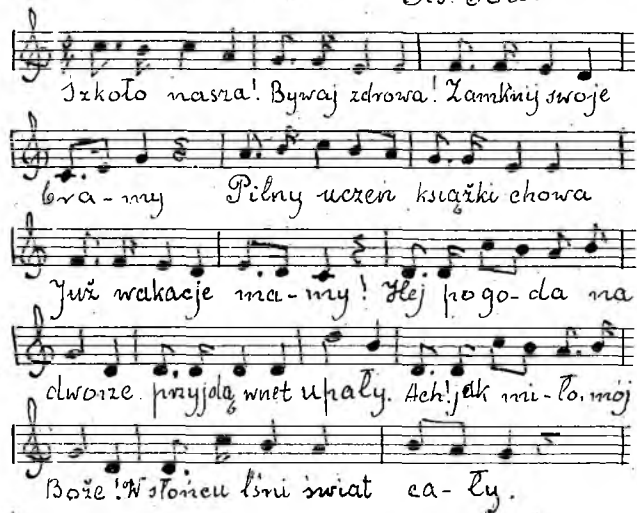 Szkoło nasza! Bywaj zdrowa! Zamknij swoje
bra-my Pilny uczeń książki chowa
Już wakacje ma-my! Hej pogo-da na
dworze. przyjdą wnet upały. Ach! jak mi-ło, mój
Boże! W słońcu lśni świat ca-ły.